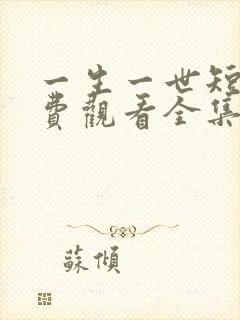 一生一世短
費觀看全集
蘇傾